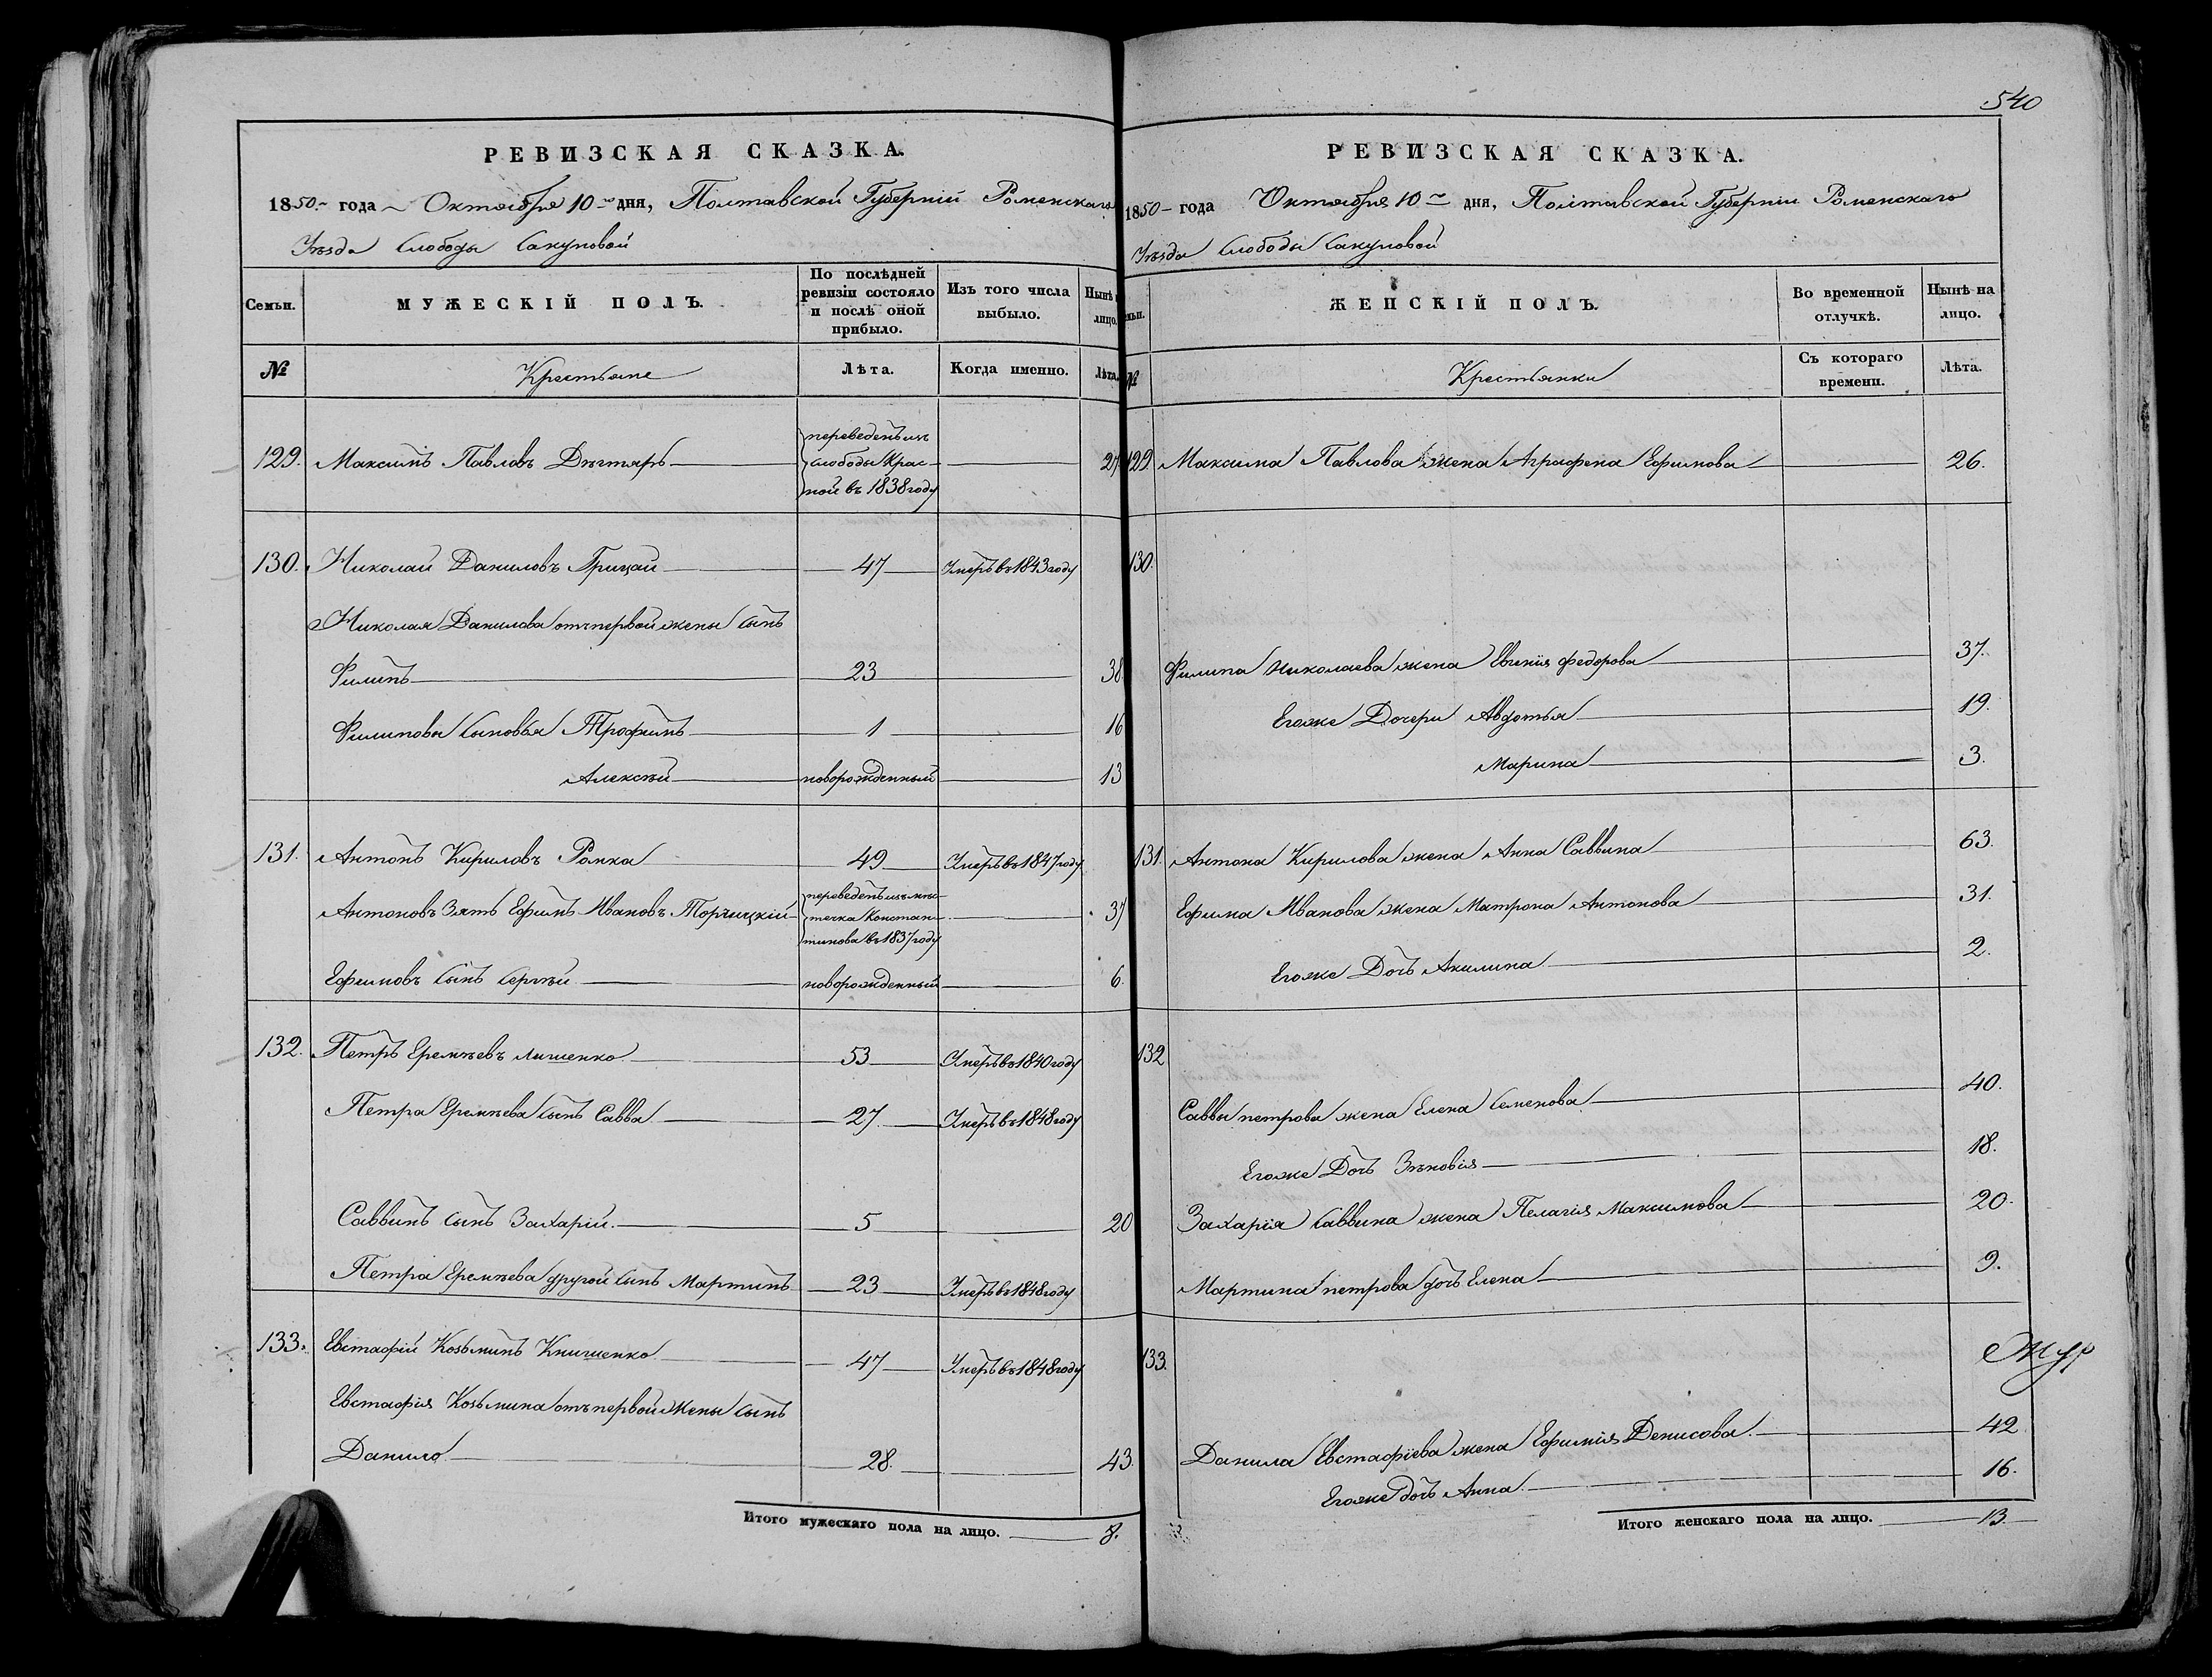 РЕВИЗСКАЯ СКАЗКА.
1850 года Октября 10 дня, Полтавской Губерніи Роменскаго
Уѣзда Слободы Сакуновой
Семьи. МУЖЕСКІЙ ПОЛЪ. По послѣдней ревизіи состояло и послѣ оной прибыло. Изъ того числа выбыло. Нынѣ лицо.
№ Крестьяне Лѣта. Когда именно. Лѣта.
129. Максимъ Павловъ Дѣгтярь переведенъ изъ слободы Крас-ной въ 1838 году 27
130. Николай Даниловъ Грицай 47 Умеръ въ 1843 году
Николая Данилова отъ первой жены сынъ
Филипъ 23 38.
Филиповы сыновья Трофимъ 1 16
Алексѣй новорожденный 13
131. Антонъ Кириловъ Ромка 49 Умеръ въ 1847 году
Антоновъ Зять Ефимъ Ивановъ Торчицкій переведенъ изъ мѣс-течка Констан-тинова въ 1837 году 37
Ефимовъ сынъ Сергѣй новорожденный 6.
132. Петръ Еремѣевъ Лишенко 53 Умеръ въ 1840 году
Петра Еремѣева сынъ Савва 27. Умеръ въ 1848 году
Саввинъ сынъ Захарій. 5 20
Петра Еремѣева другой сынъ Мартинъ 23 Умеръ въ 1848 году
133. Евстафій Козьминъ Книшенко 47 Умеръ въ 1848 году
Евстафія Козьмина отъ первой жены сынъ
Данило 28. 43.
Итого мужескаго пола на лицо. 8.
540
РЕВИЗСКАЯ СКАЗКА.
1850 года Октября 10 дня, Полтавской Губерніи Роменскаго
Уѣзда Слободы Сакуновой
ЖЕНСКІЙ ПОЛЪ. Во временной отлучкѣ. Нынѣ на лицо.
№ Крестьянки Съ котораго времени. Лѣта.
129 Максима Павлова жена Аграфена Ефимова 26.
130.
Филипа Николаева жена Евгенія Федорова 37.
Егоже Дочери Авдотья 19.
Марина 3.
131. Антона Кирилова жена Анна Саввина 63.
Ефима Иванова жена Матрона Антонова 31.
Егоже Дочь Акилина 2.
132
Саввы Петрова жена Елена Семенова 40.
Егоже Дочь Зѣновія 18.
Захарія Саввина жена Пелагія Максимова 20.
Мартина Петрова дочь Елена 9.
133.
Данила Евстафіева жена Ефимія Денисова. 42
Егоже дочь Анна. 16.
Итого женскаго пола на лицо. 13.